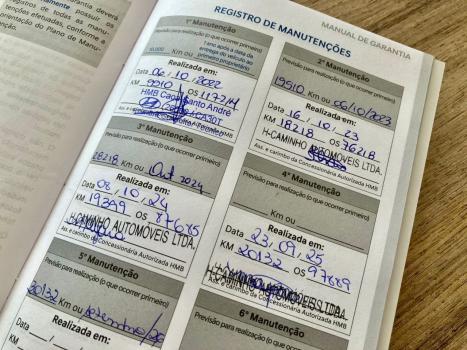 egistro
registros de
registros de todas as manu-
tenções efetuadas, conforme a
orientação do Plano de Manu-
tenção.
MANUAL DE GARANTIA
REGISTRO DE MANUTENÇÕES
1ª Manutenção
Previsão para realização (o que ocorrer primeiro)
10.000 Km ou 1 ano após a data da
entrega do veículo ao
primeiro proprietário
Realizada em:
Data 06, 10, 2022
KM 9910 OS 117214
HMB Caoa Santo André
2ª Manutenção
Previsão para realização (o que ocorrer primeiro)
19910 Km ou 06/10/2023
Realizada em:
Data 16, 10, 23
KM 18218 OS 76218
H-CAMINHO AUTOMOVEIS LTDA.
Ass. e carimbo da Concessionária Autorizada HMB
3ª Manutenção
Previsão para realização (o que ocorrer primeiro)
28218 Km ou Out 2024
Realizada em:
Data 08, 10, 24
KM 19399 OS 87685
H-CAMINHO AUTOMÓVEIS LTDA.
Ass. e carimbo da Concessionária Autorizada HMB
4ª Manutenção
Previsão para realização (o que ocorrer primeiro)
Km ou
Realizada em:
Data 23, 09, 25
KM 20132 OS 97889
H-CAMINHO AUTOMÓVEIS LTDA.
Ass. e carimbo da Concessionária Autorizada HMB
5ª Manutenção
Previsão para realização (o que ocorrer primeiro)
30132 Km ou setembro/20
Realizada em:
Data
OS
6ª Manutenção
Previsão para realização (o que ocorrer primeiro)
Km ou
Realizada em: